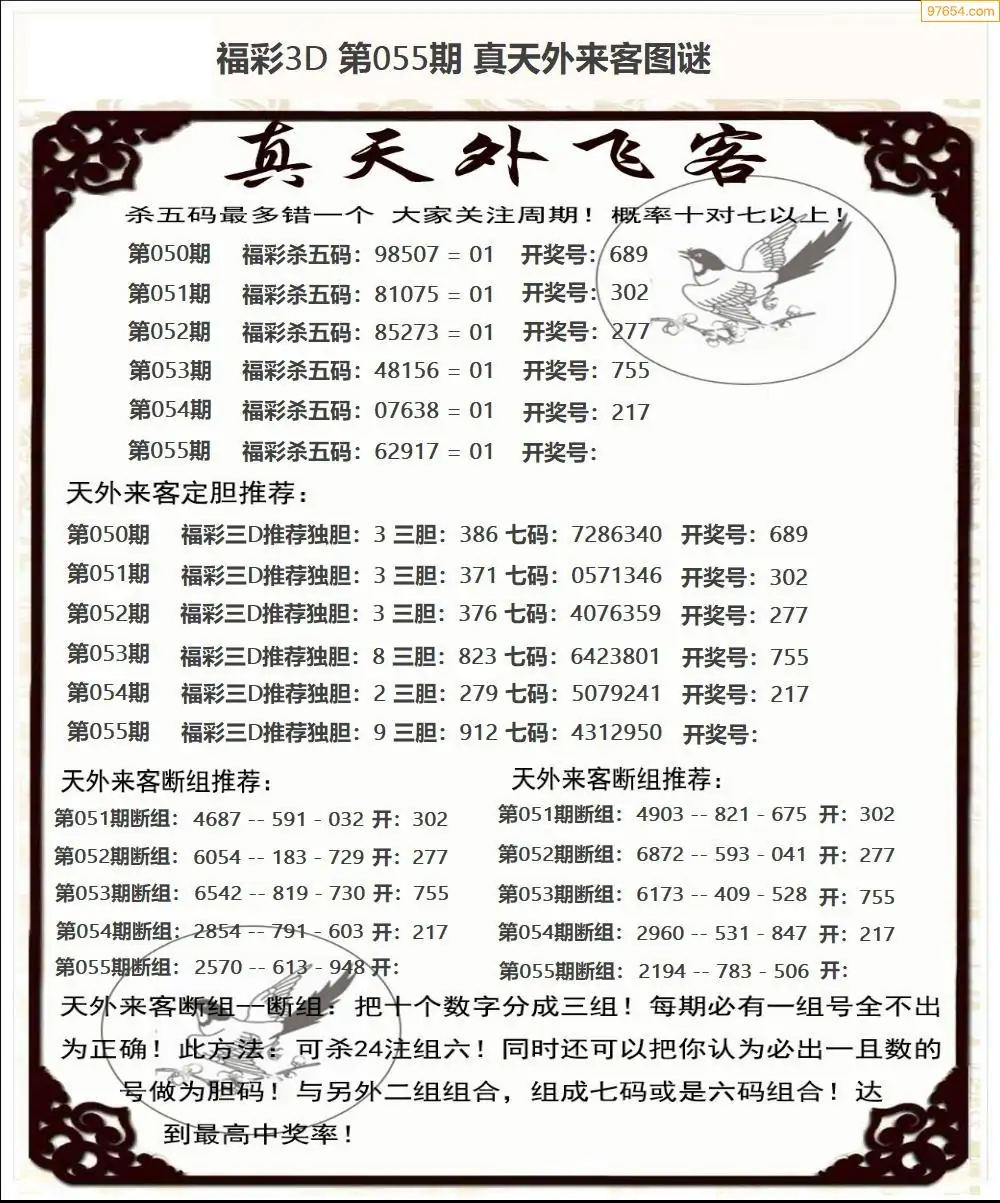 97654.com
福彩3D 第055期 真天外来客图谜
真天外飞客
杀五码最多错一个 大家关注周期！概率十对七以上！
第050期 福彩杀五码：98507 = 01 开奖号：689
第051期 福彩杀五码：81075 = 01 开奖号：302
第052期 福彩杀五码：85273 = 01 开奖号：277
第053期 福彩杀五码：48156 = 01 开奖号：755
第054期 福彩杀五码：07638 = 01 开奖号：217
第055期 福彩杀五码：62917 = 01 开奖号：
天外来客定胆推荐：
第050期 福彩三D推荐独胆：3 三胆：386 七码：7286340 开奖号：689
第051期 福彩三D推荐独胆：3 三胆：371 七码：0571346 开奖号：302
第052期 福彩三D推荐独胆：3 三胆：376 七码：4076359 开奖号：277
第053期 福彩三D推荐独胆：8 三胆：823 七码：6423801 开奖号：755
第054期 福彩三D推荐独胆：2 三胆：279 七码：5079241 开奖号：217
第055期 福彩三D推荐独胆：9 三胆：912 七码：4312950 开奖号：
天外来客断组推荐：
第051期断组：4687 -- 591 - 032 开：302
第052期断组：6054 -- 183 - 729 开：277
第053期断组：6542 -- 819 - 730 开：755
第054期断组：2854 -- 791 - 603 开：217
第055期断组：2570 -- 613 - 948 开：
天外来客断组推荐：
第051期断组：4903 -- 821 - 675 开：302
第052期断组：6872 -- 593 - 041 开：277
第053期断组：6173 -- 409 - 528 开：755
第054期断组：2960 -- 531 - 847 开：217
第055期断组：2194 -- 783 - 506 开：
天外来客断组一断组：把十个数字分成三组！每期必有一组号全不出
为正确！此方法：可杀24注组六！同时还可以把你认为必出一且数的
号做为胆码！与另外二组组合，组成七码或是六码组合！达
到最高中奖率！